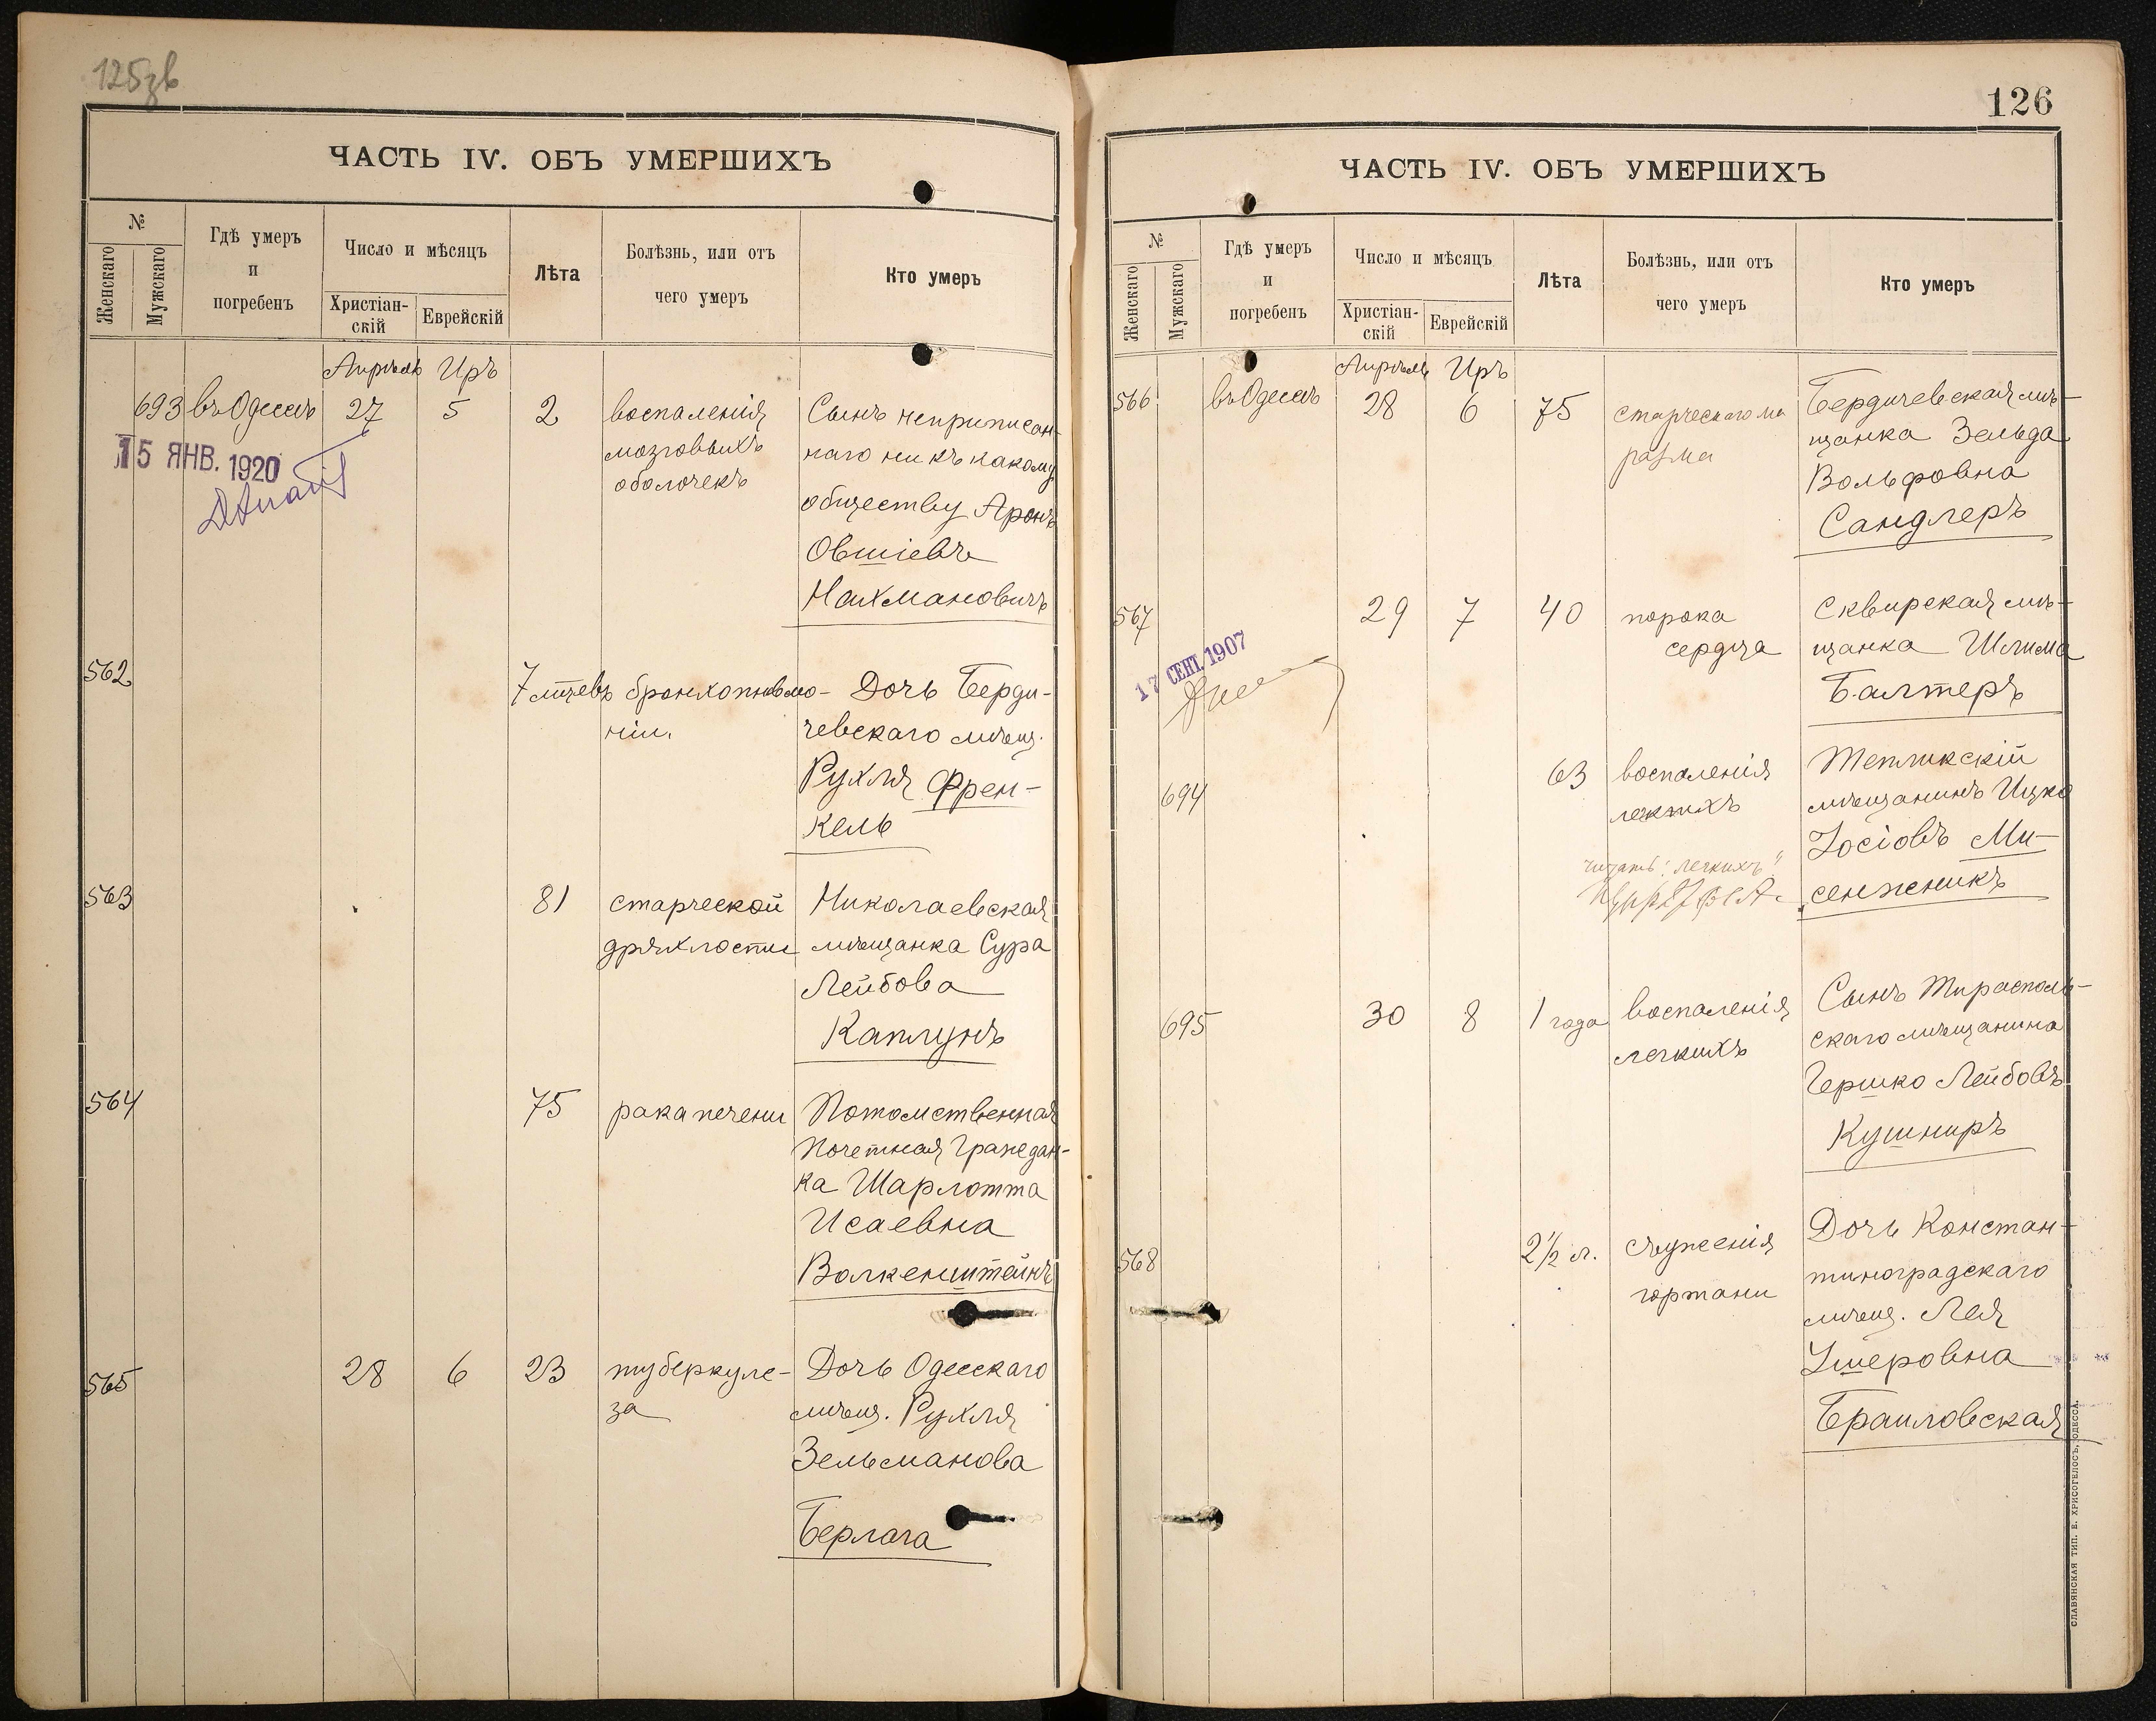 125зв
ЧАСТЬ IV. ОБЪ УМЕРШИХЪ
№
Женскаго
Мужскаго
Гдѣ умеръ
и
погребенъ
Число и мѣсяцъ
Христіан-
скій
Еврейскій
Лѣта
Болѣзнь, или отъ
чего умеръ
Кто умеръ
Апрѣль Иръ
693 въ Одессѣ 27 5 2
воспаленія
мозговыхъ
оболочекъ
Сынъ неприписан-
наго ни къ какому
обществу Аронъ
Овшіевъ
Нахмановичъ
15 ЯНВ. 1920
562
7 мѣцевъ бронхопневмо-
ніи.
Дочь Берди-
чевскаго мѣщ.
Рухля Френ-
кель
563
81
старческой
дряхлости
Николаевская
мѣщанка Сура
Лейбова
Каплунъ
564
75
рака печени
Потомственная
Почетная Граждан-
ка Шарлотта
Исаевна
Волкенштейнъ
565
28 6 23
туберкуле-
за
Дочь Одесскаго
мѣщ. Рухля
Зельманова
Берлага
126
ЧАСТЬ IV. ОБЪ УМЕРШИХЪ
№
Женскаго
Мужскаго
Гдѣ умеръ
и
погребенъ
Число и мѣсяцъ
Христіан-
скій
Еврейскій
Лѣта
Болѣзнь, или отъ
чего умеръ
Кто умеръ
Апрѣль Иръ
566 въ Одессѣ 28 6 75
старческаго ма
разма
Бердичевская мѣ-
щанка Зельда
Вольфовна
Сандлеръ
567
29 7 40
порока
сердца
Сквирская мѣ-
щанка Шлима
Балтеръ
17 СЕНТ. 1907
694
63
воспаленія
легкихъ
читать: легкихъ"
Тепликскій
мѣщанинъ Ицко
Іосіовъ Ми-
сенжникъ
695
30 8 1 года
воспаленія
легкихъ
Сынъ Тирасполь-
скаго мѣщанина
Гершко Лейбовъ
Кушниръ
568
2½ л.
съуженія
гортани
Дочь Констан-
тиноградскаго
мѣщ. Лея
Ушеровна
Браиловская
СЛАВЯНСКАЯ ТИП. Е. ХРИСОГЕЛОСЪ, ОДЕССА.